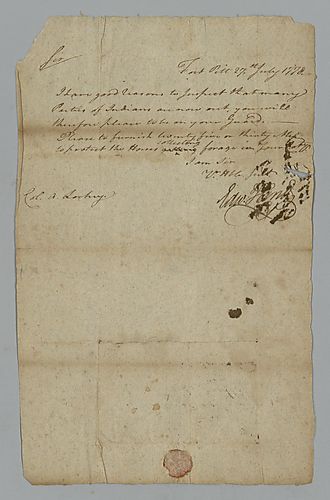 Sir
Fort Pitt 27th July 1778
I have good reasons to suspect that many
Parties of Indians are now out, you will
therefore please to be on your Guard.
Please to furnish twenty five or thirty Men
to protect the Horses collecting forage in your
I am Sir
Col. A. Lochry